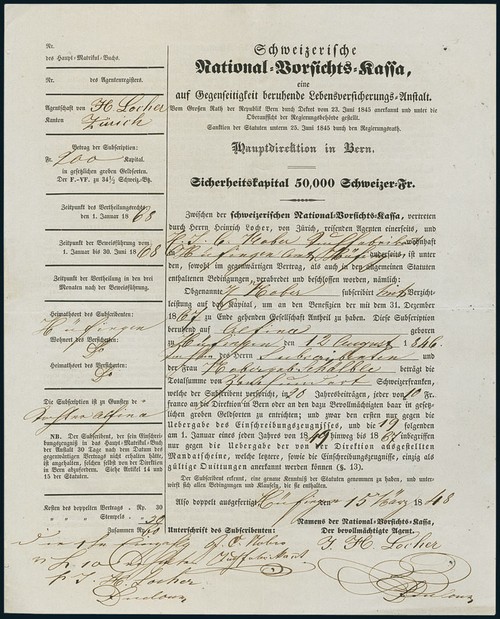 Nr.
des Haupt-Matrikul-Buchs.
Nr. des Agentenregisters.
Agentschaft von H. Locher
Kanton Zürich
Betrag der Subscription:
Fr. 200 Kapital.
in gesetzlichen groben Geldsorten.
Der F.-VF. zu 34½ Schweiz.-Bz.
Zeitpunkt des Vertheilungsrechts
den 1. Januar 1868
Zeitpunkt der Beweisführung vom
1. Januar bis 30. Juni 1868
Zeitpunkt der Vertheilung in den drei
Monaten nach der Beweisführung.
Heimathsort des Subscribenten:
Hüfingen
Wohnort des Versicherten:
Do
Heimathsort des Versicherten:
Do
Die Subscription ist zu Gunsten de
Tochter Alfina
NB. Der Subscribent, der sein Einschrei-
bungszeugniß in das Haupt-Matrikul-Buch
der Anstalt 30 Tage nach dem Datum des
gegenwärtigen Vertrags nicht erhalten hätte,
ist angehalten, solchen selbst von der Direktion
in Bern abzufordern. Siehe Artikel 14 und
15 der Statuten.
Kosten des doppelten Vertrags Rp. 30
Stempels 30
Zusammen Rp. 60
H. Locher
Schweizerische
National-Vorsichts-Kassa,
eine
auf Gegenseitigkeit beruhende Lebensversicherungs-Anstalt.
Vom Großen Rath der Republik Bern durch Dekret vom 23. Juni 1845 anerkannt und unter die
Oberaufsicht der Regierungsbehörde gestellt.
Sanktion der Statuten unterm 25. Juni 1845 durch den Regierungsrath.
Hauptdirektion in Bern.
Sicherheitskapital 50,000 Schweizer-Fr.
Zwischen der schweizerischen National-Vorsichts-Kassa, vertreten
durch Herrn Heinrich Locher, von Zürich, reisenden Agenten einerseits, und
Hober wohnhaft
Hüfingen anderseits, ist un-
ter den, sowohl im gegenwärtigen Vertrag, als auch in den allgemeinen Statuten
enthaltenen Bedingungen, verabredet und beschlossen worden, nämlich:
Obgenannte Hober subscribirt mit Verzicht-
leistung auf das Kapital, um an den Benefizien der mit dem 31. Dezember
1867 zu Ende gehenden Gesellschaft Antheil zu haben. Diese Subscription
beruhend auf Alfina geboren
zu Hüfingen den 12 August 1846.
des Herrn
und der Frau beträgt die
Totalsumme von Zweihundert Schweizerfranken,
welche der Subscribent verspricht, in 20 Jahresbeiträgen, jeder von 10 Fr.
ohne Abzug an die Direktion in Bern oder an den dazu Bevollmächtigten baar in gesetz-
lichen groben Geldsorten zu entrichten; und zwar den ersten nur gegen die
Uebergabe des Einschreibungszeugnisses, und die 19 folgenden
am 1. Januar eines jeden Jahres von 1849 hinweg bis 1867 inbegriffen
nur gegen die Uebergabe der von der Direktion ausgestellten
Mandatscheine, welche letztere, sowie die Einschreibungszeugnisse, einzig als
gültige Quittungen anerkannt werden können (§. 13).
Der Subscribent erklärt, eine genaue Kenntniß der Statuten genommen zu haben, und unterzieht sich
allen Bedingungen und Klauseln, die sie enthalten.
Also doppelt ausgefertigt Hüfingen 15 März 1848
Unterschrift des Subscribenten:
Namens der National-Vorsichts-Kassa,
Der bevollmächtigte Agent.
J. H. Locher